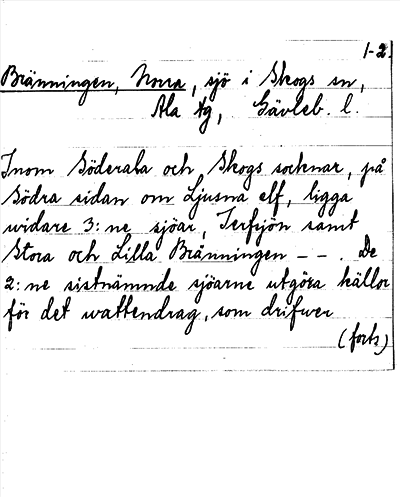 1-2.
Bränningen, Norra, sjö i Skogs sn,
Ala tg, Gävleb. l.
Inom Söderala och Skogs socknar, på
södra sidan om Ljusna elf, ligga
widare 3:ne sjöar, Terfsjön samt
Stora och Lilla Bränningen - - . De
2:ne sistnämnde sjöarne utgöra källor
för det wattendrag, som drifwer
(forts)